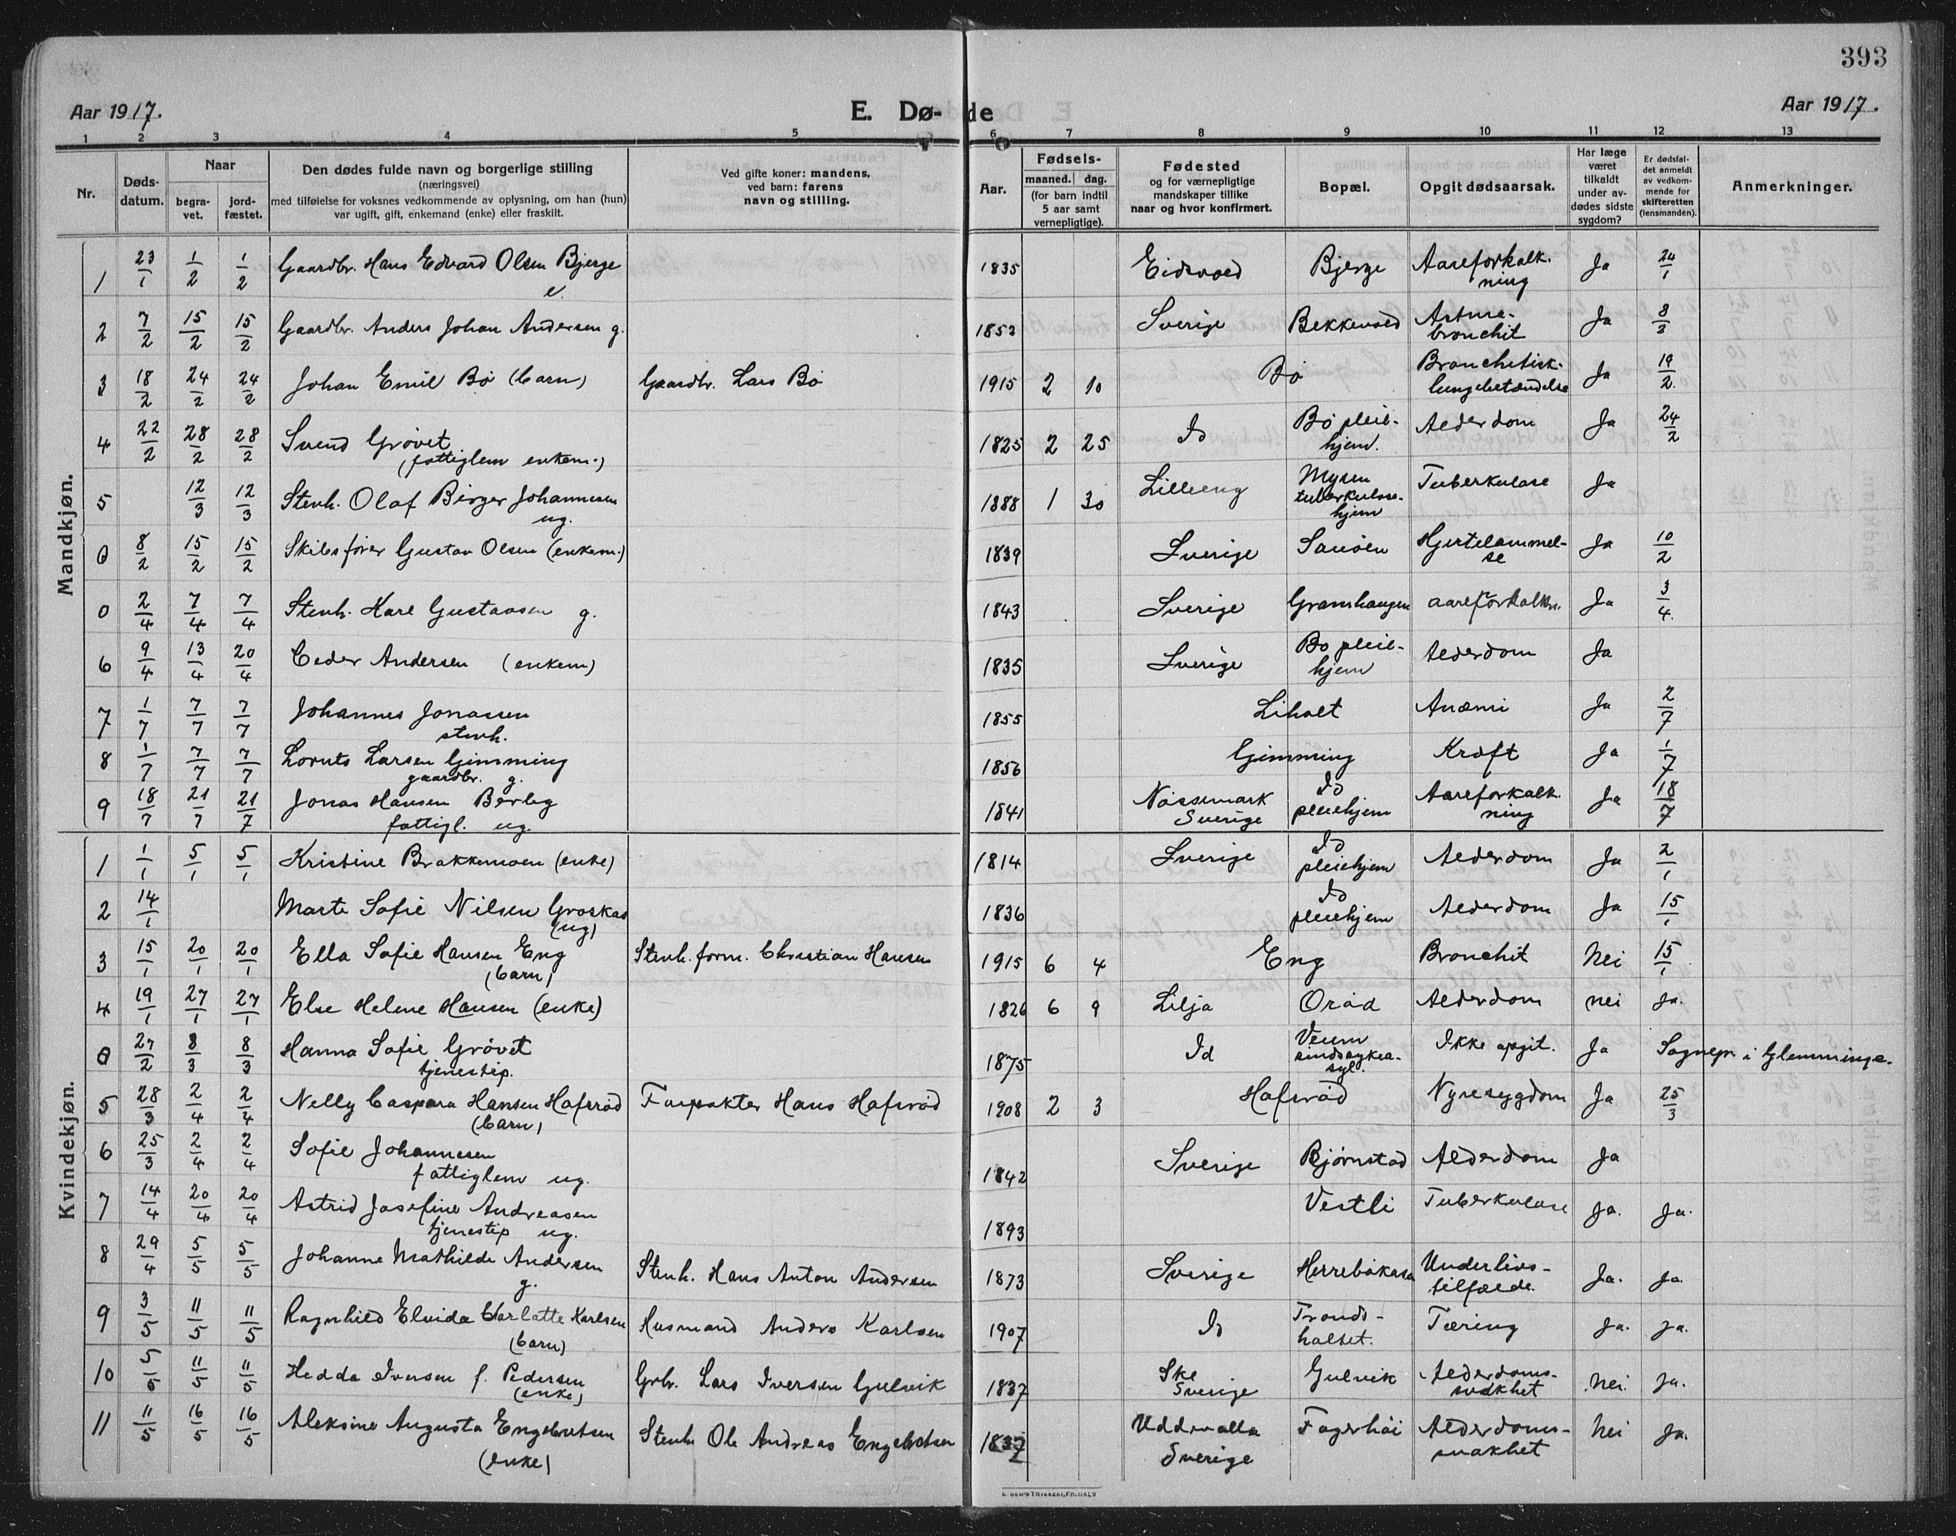 393
Aar 1917. E. Dø-de Aar 1917.
1 2 3 4 5 6 7 8 9 10 11 12 13
Nr. Døds-datum. Naar begra-vet. jord-fæstet. Den dødes fulde navn og borgerlige stilling (næringsvei) med tilføielse for voksnes vedkommende av oplysning, om han (hun) var ugift, gift, enkemand (enke) eller fraskilt. Ved gifte koner: mandens, ved barn: farens navn og stilling. Aar. Fødsels- maaned. dag. (for barn indtil 5 aar samt vernepligtige). Fødested og for værnepligtige mandskaper tillike naar og hvor konfirmert. Bopæl. Opgit dødsaarsak. Har læge været tilkaldt under av-dødes sidste sygdom? Er dødsfal-det anmeldt av vedkom-mende for skifteretten (lensmanden). Anmerkninger.
Mandkjøn.
1 23/1 1/2 1/2 Gaardbr. Hans Edvard Olsen Bjerge e. 1835 Eidsvold Bjerge Aareforkalk-ning Ja 24/1
2 7/2 15/2 15/2 Gaardbr. Anders Johan Andersen g. 1852 Sverige Bekkevold Astma-bronchit Ja 8/3
3 18/2 24/2 24/2 Johan Emil Bø (barn) Gaardbr. Lars Bø 1915 2 10 Bø Bronchitisk-lungebetændelse Ja 19/2
4 22/2 28/2 28/2 Svend Grøvet (fattiglem enkem.) 1825 2 25 Id Bø pleie-hjem. Alderdom Ja 24/2
5 12/3 12/3 Stenh. Olaf Birger Johannesen ug. 1888 1 30 Lilleeng Mysen tuberkulose-hjem Tuberkulose Ja
0 8/2 15/2 15/2 Skibsfører Gustav Olsen (enkem.) 1839 Sverige Sauøen Hjertelammel-se Ja 10/2
0 2/4 7/4 7/4 Stenh. Karl Gustavsen g. 1843 Sverige Granhaugen aareforkalkn. Ja 3/4
6 9/4 13/4 20/4 Peder Andersen (enkem) 1835 Sverige Bø pleie-hjem Alderdom Ja
7 1/7 7/7 7/7 Johannes Jonassen stenh. 1855 Liholt Anæmi Ja 2/7
8 1/7 7/7 7/7 Lornts Larsen Gimming gaardbr. g. 1856 Gimming Kræft Ja 1/7
9 18/7 21/7 21/7 Jonas Hansen Berby fattigl. ug. 1841 Nøssemark Sverige Id pleiehjem Aareforkalk-ning Ja 18/7
Kvindekjøn.
1 1/1 5/1 5/1 Kristine Brakkemoen (enke) 1814 Sverige Id pleiehjem Alderdom Ja 2/1
2 14/1 Marte Sofie Nilsen Graskas (ug) 1836 Id pleiehjem Alderdom Ja 15/1
3 15/1 20/1 20/1 Ella Sofie Hansen Eng (barn) Stenh. form. Christian Hansen 1915 6 4 Eng Bronchit Nei 15/1
4 19/1 27/1 27/1 Else Helene Hansen (enke) 1826 6 9 Lilja Orød Alderdom nei Ja.
0 27/2 8/3 8/3 Hanna Sofie Grøvet tjenestep. 1875 Id Veum sindssykea-syl. Ikke opgit. Ja Sognepr. i Glemminge.
5 28/3 2/4 2/4 Nelly Caspara Hansen Hafsrød (barn) Forpakter Hans Hafsrød 1908 2 3 Hafsrød Nyresygdom Ja 25/3
6 25/3 2/4 2/4 Sofie Johannesen fattiglem ug. 1842 Sverige Bjørnstad Alderdom Ja
7 14/4 20/4 20/4 Astrid Josefine Andreasen tjenestep ug. 1893 Vestli Tuberkulose Ja. Ja.
8 29/4 5/5 5/5 Johanne Mathilde Andersen g. Stenh. Hans Anton Andersen 1873 Sverige Herrebøkasa Underlivs-tilfælde. Ja. Ja
9 3/5 11/5 11/5 Ragnhild Elvida Carlotte Karlsen (barn) Husmand Anders Karlsen 1907 Id Tronds-holtet. Tæring Ja. Ja.
10 5/5 11/5 11/5 Hedda Iversen f. Pedersen (enke) Grbr. Lars Iversen Gulvik 1837 Ske Sverige Gulvik Alderdoms-svakhet Nei. Ja.
11 11/5 16/5 16/5 Aleksine Augusta Engebretsen (enke) Stenh Ole Andreas Engebretsen 1832 Uddevalla Sverige Fagerhøi Alderdoms-svakhet Nei Ja.